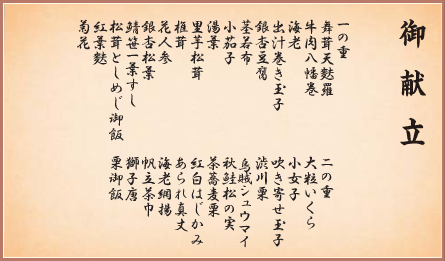 御献立
一の重
舞茸天麩羅
牛肉八幡巻
海老
出汁巻き玉子
銀杏豆腐
茎若布
小茄子
湯葉
里芋松茸
椎茸
花人参
銀杏松葉
鯖笹一葉すし
松茸としめじ御飯
紅葉麩
菊花
二の重
大粒いくら
小女子
吹き寄せ玉子
渋川栗
烏賊シュウマイ
秋鮭松の実
茶蕎麦栗
紅白はじかみ
あられ真丈
海老網揚
帆立茶巾
獅子唐
栗御飯